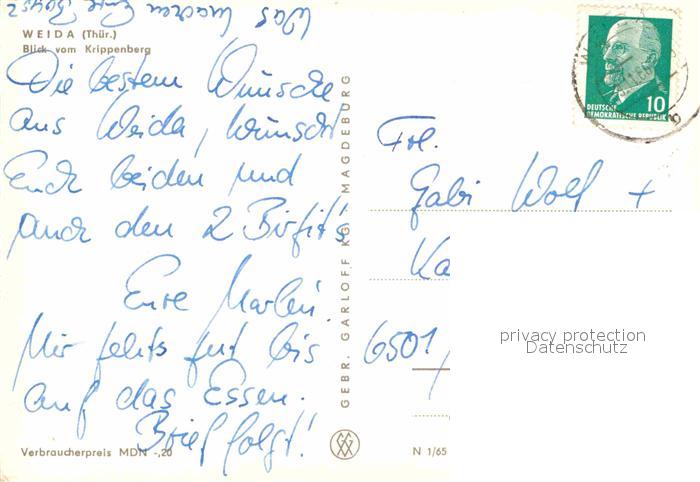 Was machen Eure
WEIDA (Thür.)
Blick vom Krippenberg
Die besten Wünsche
aus Weida, wünscht
Euch beiden und
auch den 2 Birgit's
Eure
Mir gehts gut bis
auf das Essen.
Brief folgt!
Verbraucherpreis MDN -,20
GEBR. GARLOFF KG, MAGDEBURG
N 1/65
DEUTSCHE
DEMOKRATISCHE REPUBLIK
10
Frl.
Gabi Wolf +
Ka
6501
privacy protection
Datenschutz